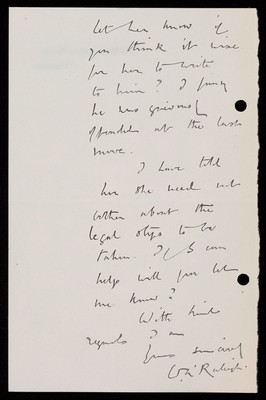 let her know if
you think it wise
for her to write
to him? I fancy
he was grievously
offended at the last
move.
I have told
her she need not
bother about the
legal steps to be
taken. If I can
help will you let
me know?
With kind
regards I am
Yours sincerely
W. Raleigh.